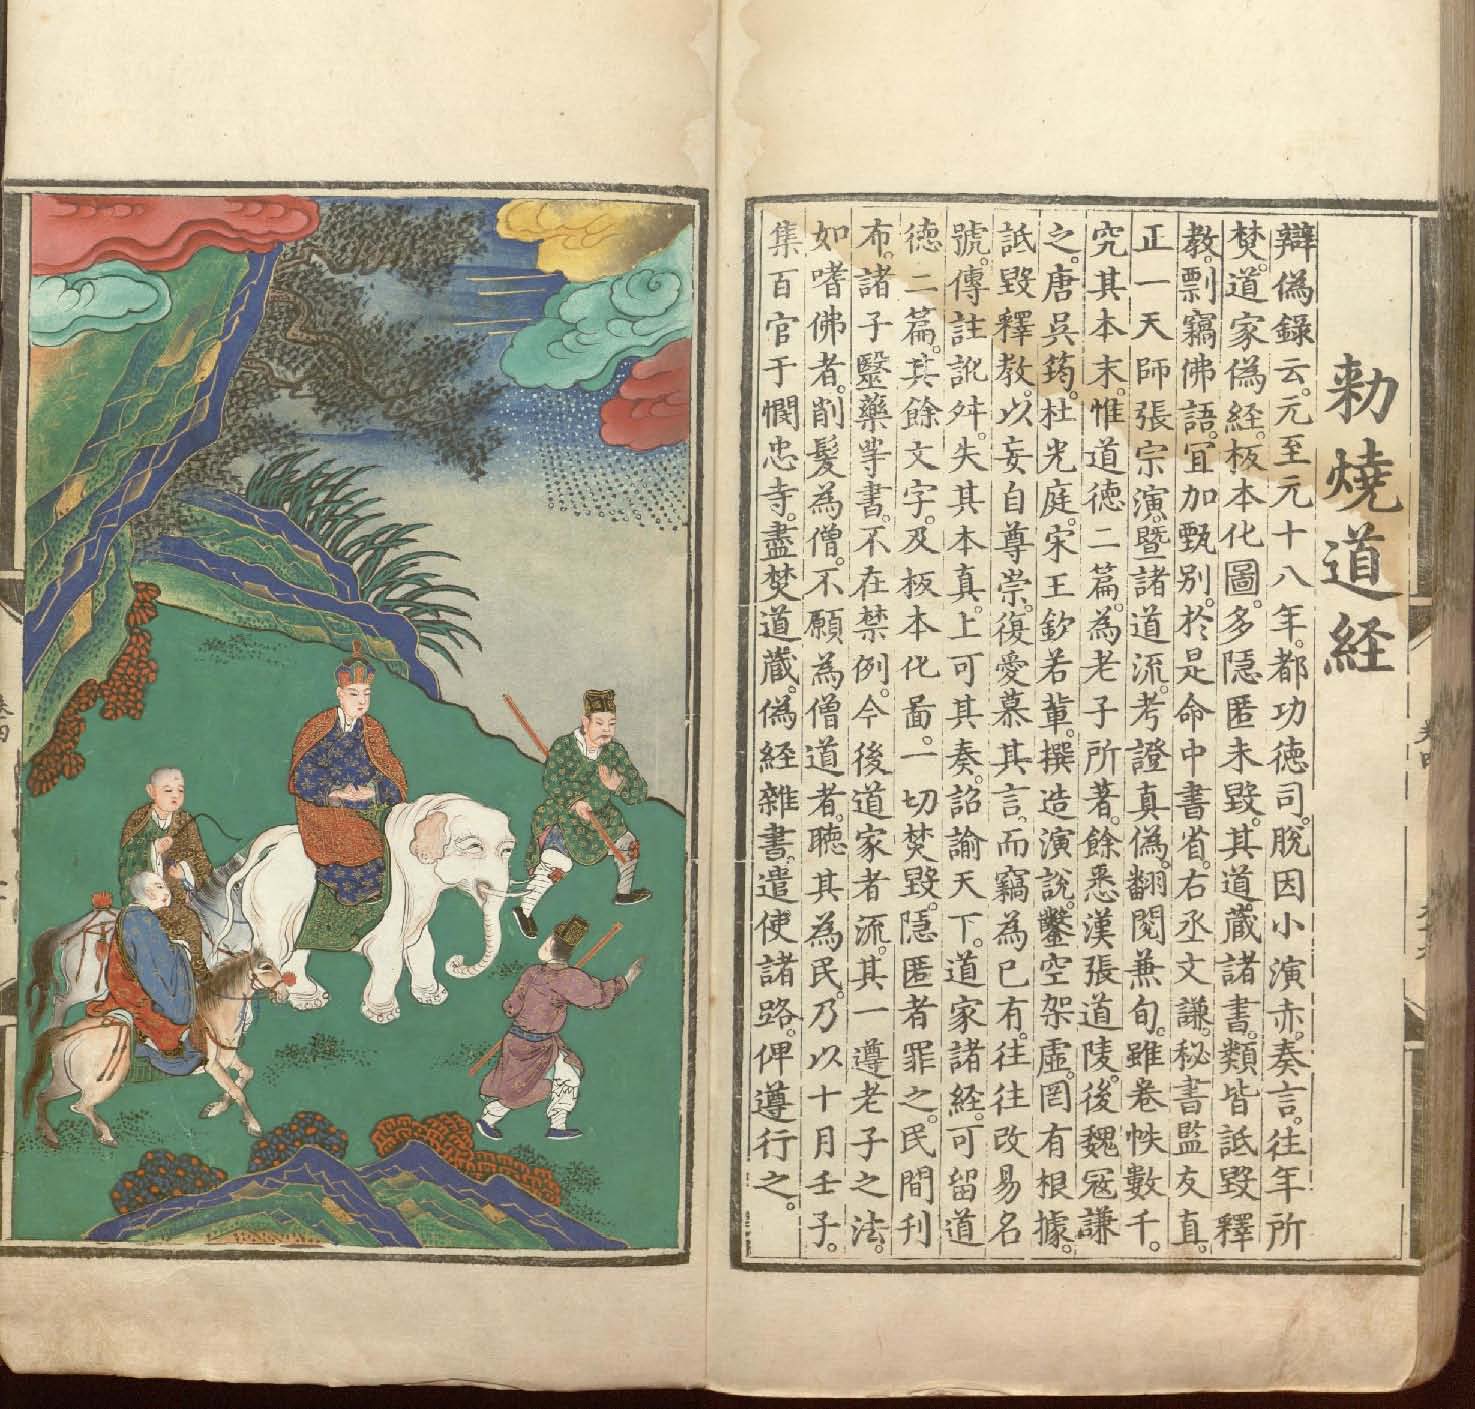 勅燒道經
辯僞錄云。元至元十八年。都功德司。脫因小演赤。奏言。往年所
焚。道家僞經。板本化圖。多隱匿未毀。其道藏諸書。類皆詆毀釋
教。剽竊佛語。宜加甄別。於是命中書省。右丞文謙。秘書監友直。
正一天師張宗演。暨諸道流。考證真僞。翻閱兼旬。雖卷帙數千。
究其本末。惟道德二篇。為老子所著。餘悉漢張道陵。後魏寇謙
之。唐吳筠。杜光庭。宋王欽若輩。撰造演說。鑿空架虛。罔有根據。
詆毀釋教。以妄自尊崇。復愛慕其言。而竊為己有。往往改易名
號。傳註訛舛。失其本真。上可其奏。詔諭天下。道家諸經。可留道
德二篇。其餘文字。及板本化啚。一切焚毀。隱匿者罪之。民間刊
布。諸子毉藥等書。不在禁例。今後道家者流。其一遵老子之法。
如嗜佛者。削髮為僧。不願為僧道者。聽其為民。乃以十月壬子。
集百官于憫忠寺。盡焚道藏。偽經雜書。遣使諸路。俾遵行之。